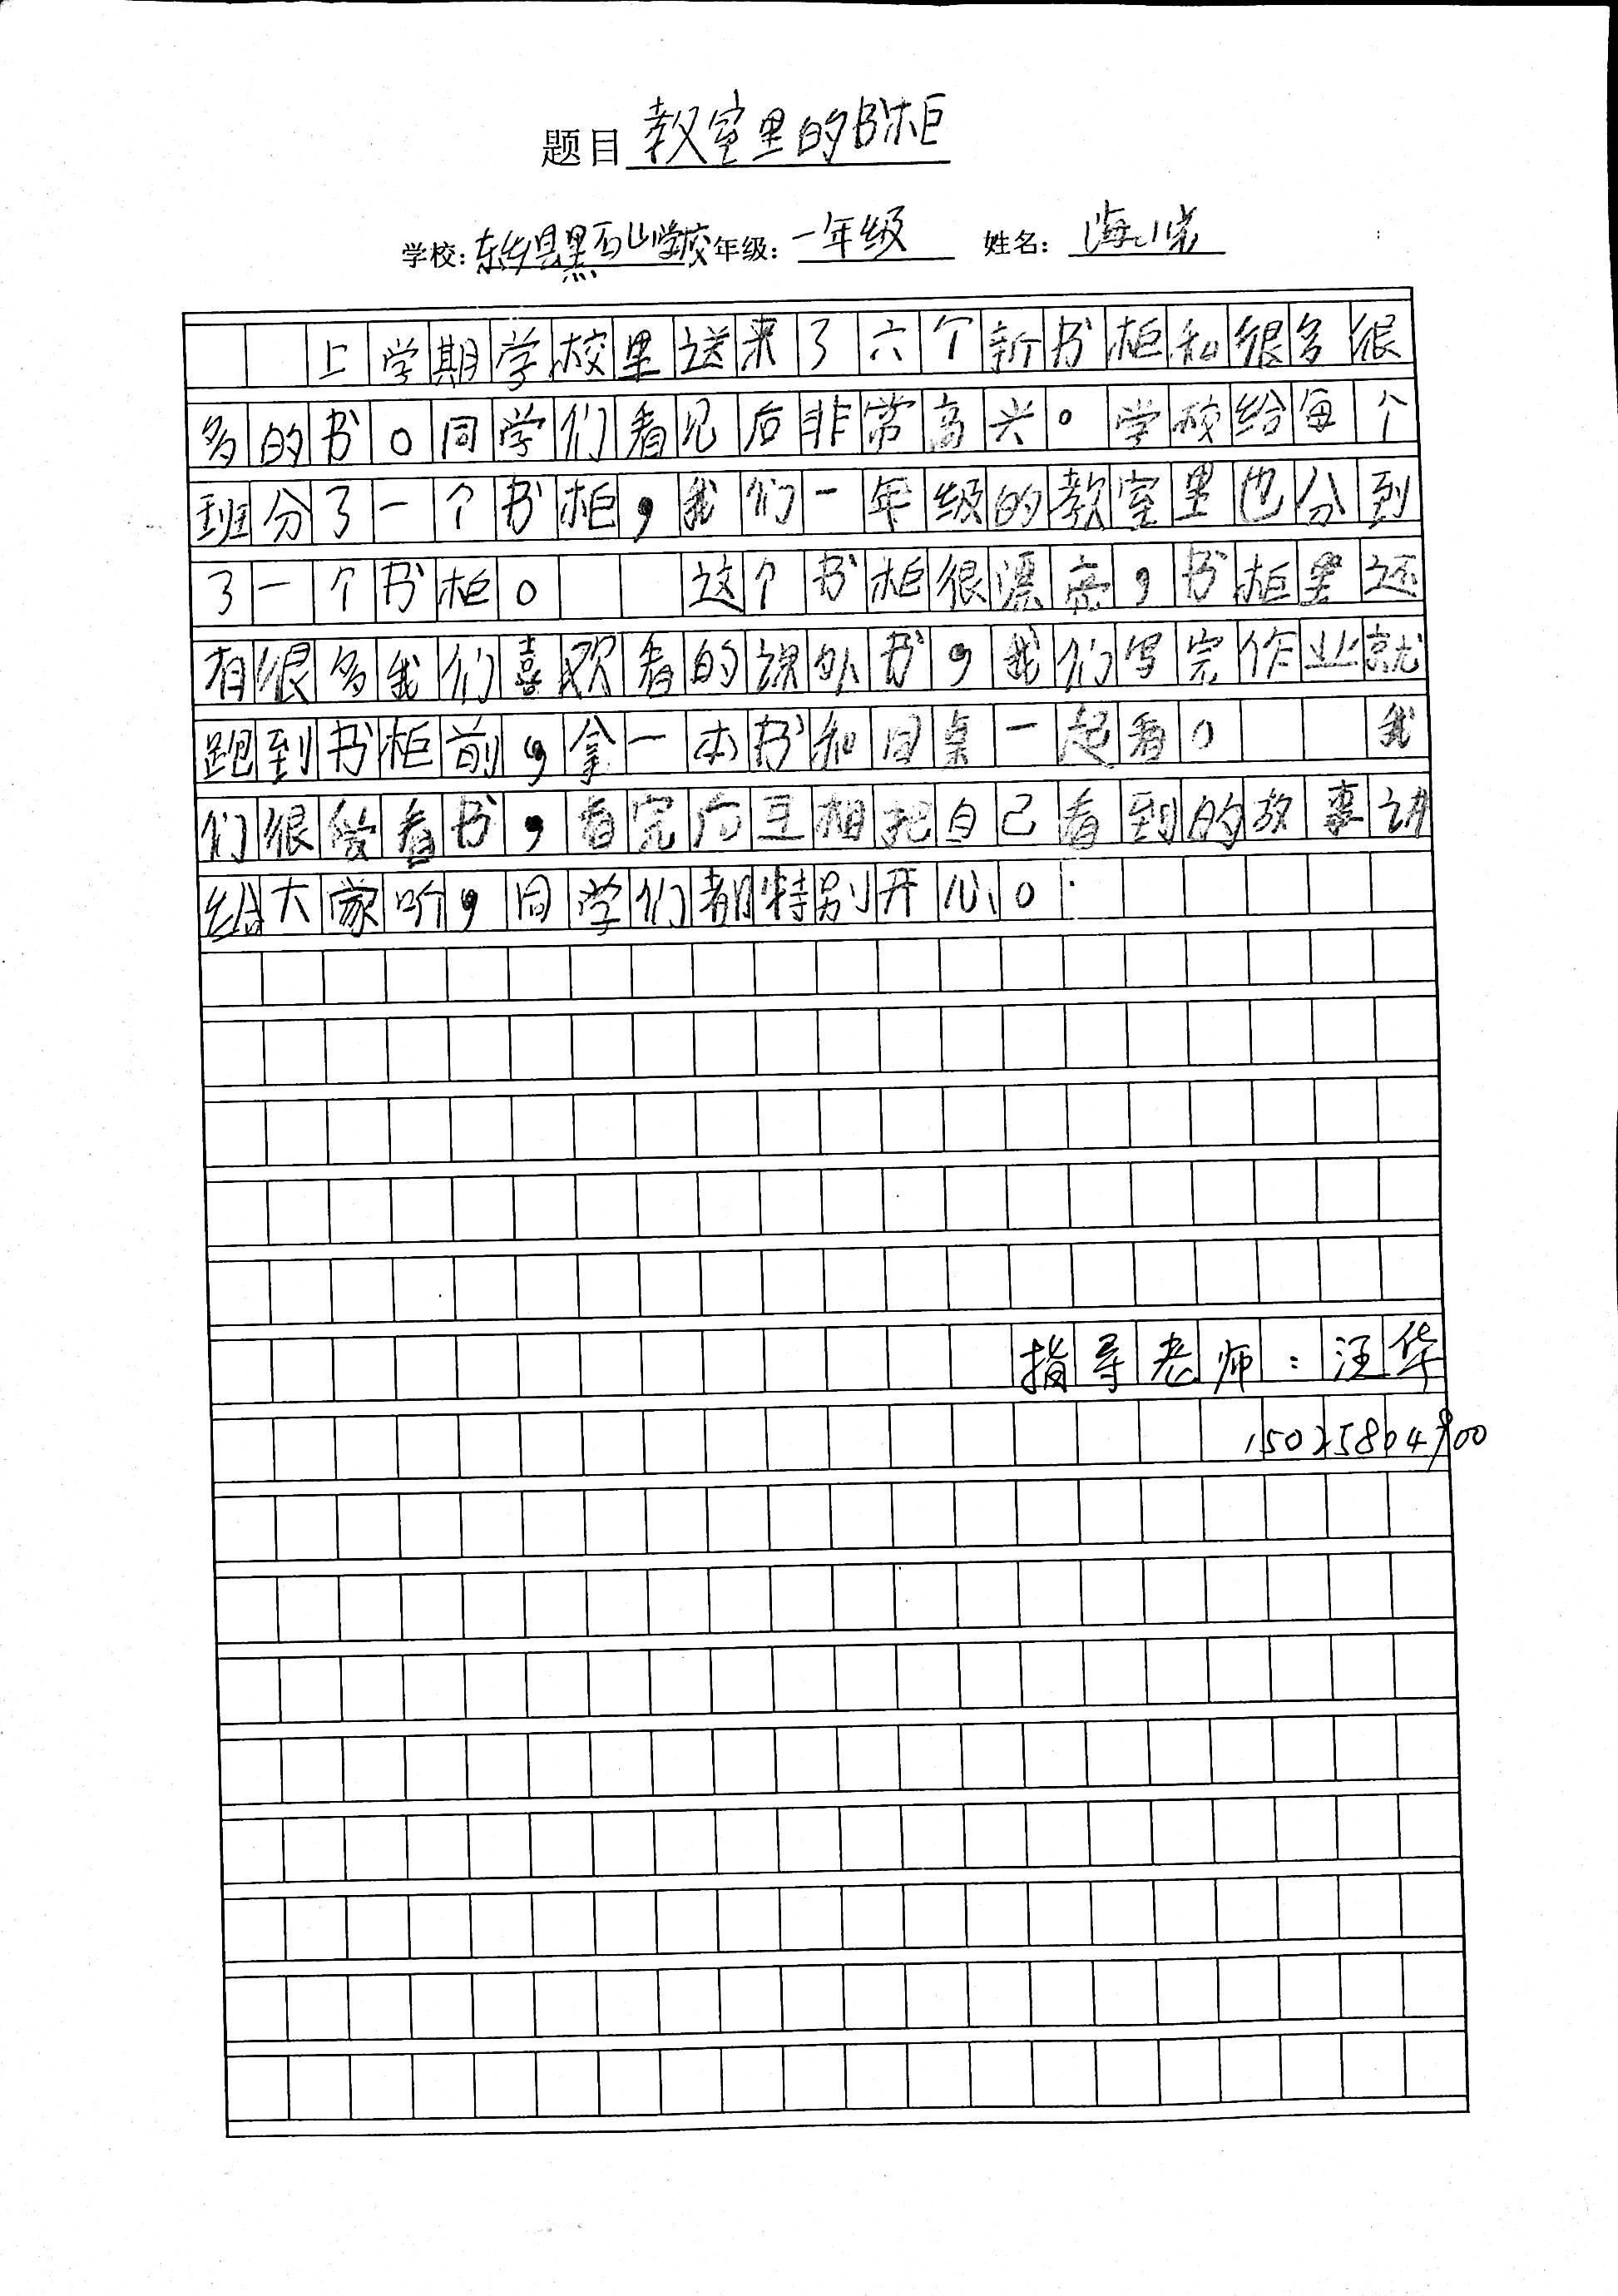 题目 教室里的书柜
学校：东乡县黑石山学校 年级：一年级 姓名：海小
上学期学校里送来了六个新书柜和很多很
多的书。同学们看见后非常高兴。学校给每个
班分了一个书柜，我们一年级的教室里也分到
了一个书柜。 这个书柜很漂亮，书柜里还
有很多我们喜欢看的课外书，我们写完作业就
跑到书柜前，拿一本书和同桌一起看。 我
们很爱看书，看完后互相把自己看到的故事讲
给大家听，同学们都特别开心。
指导老师：汪华